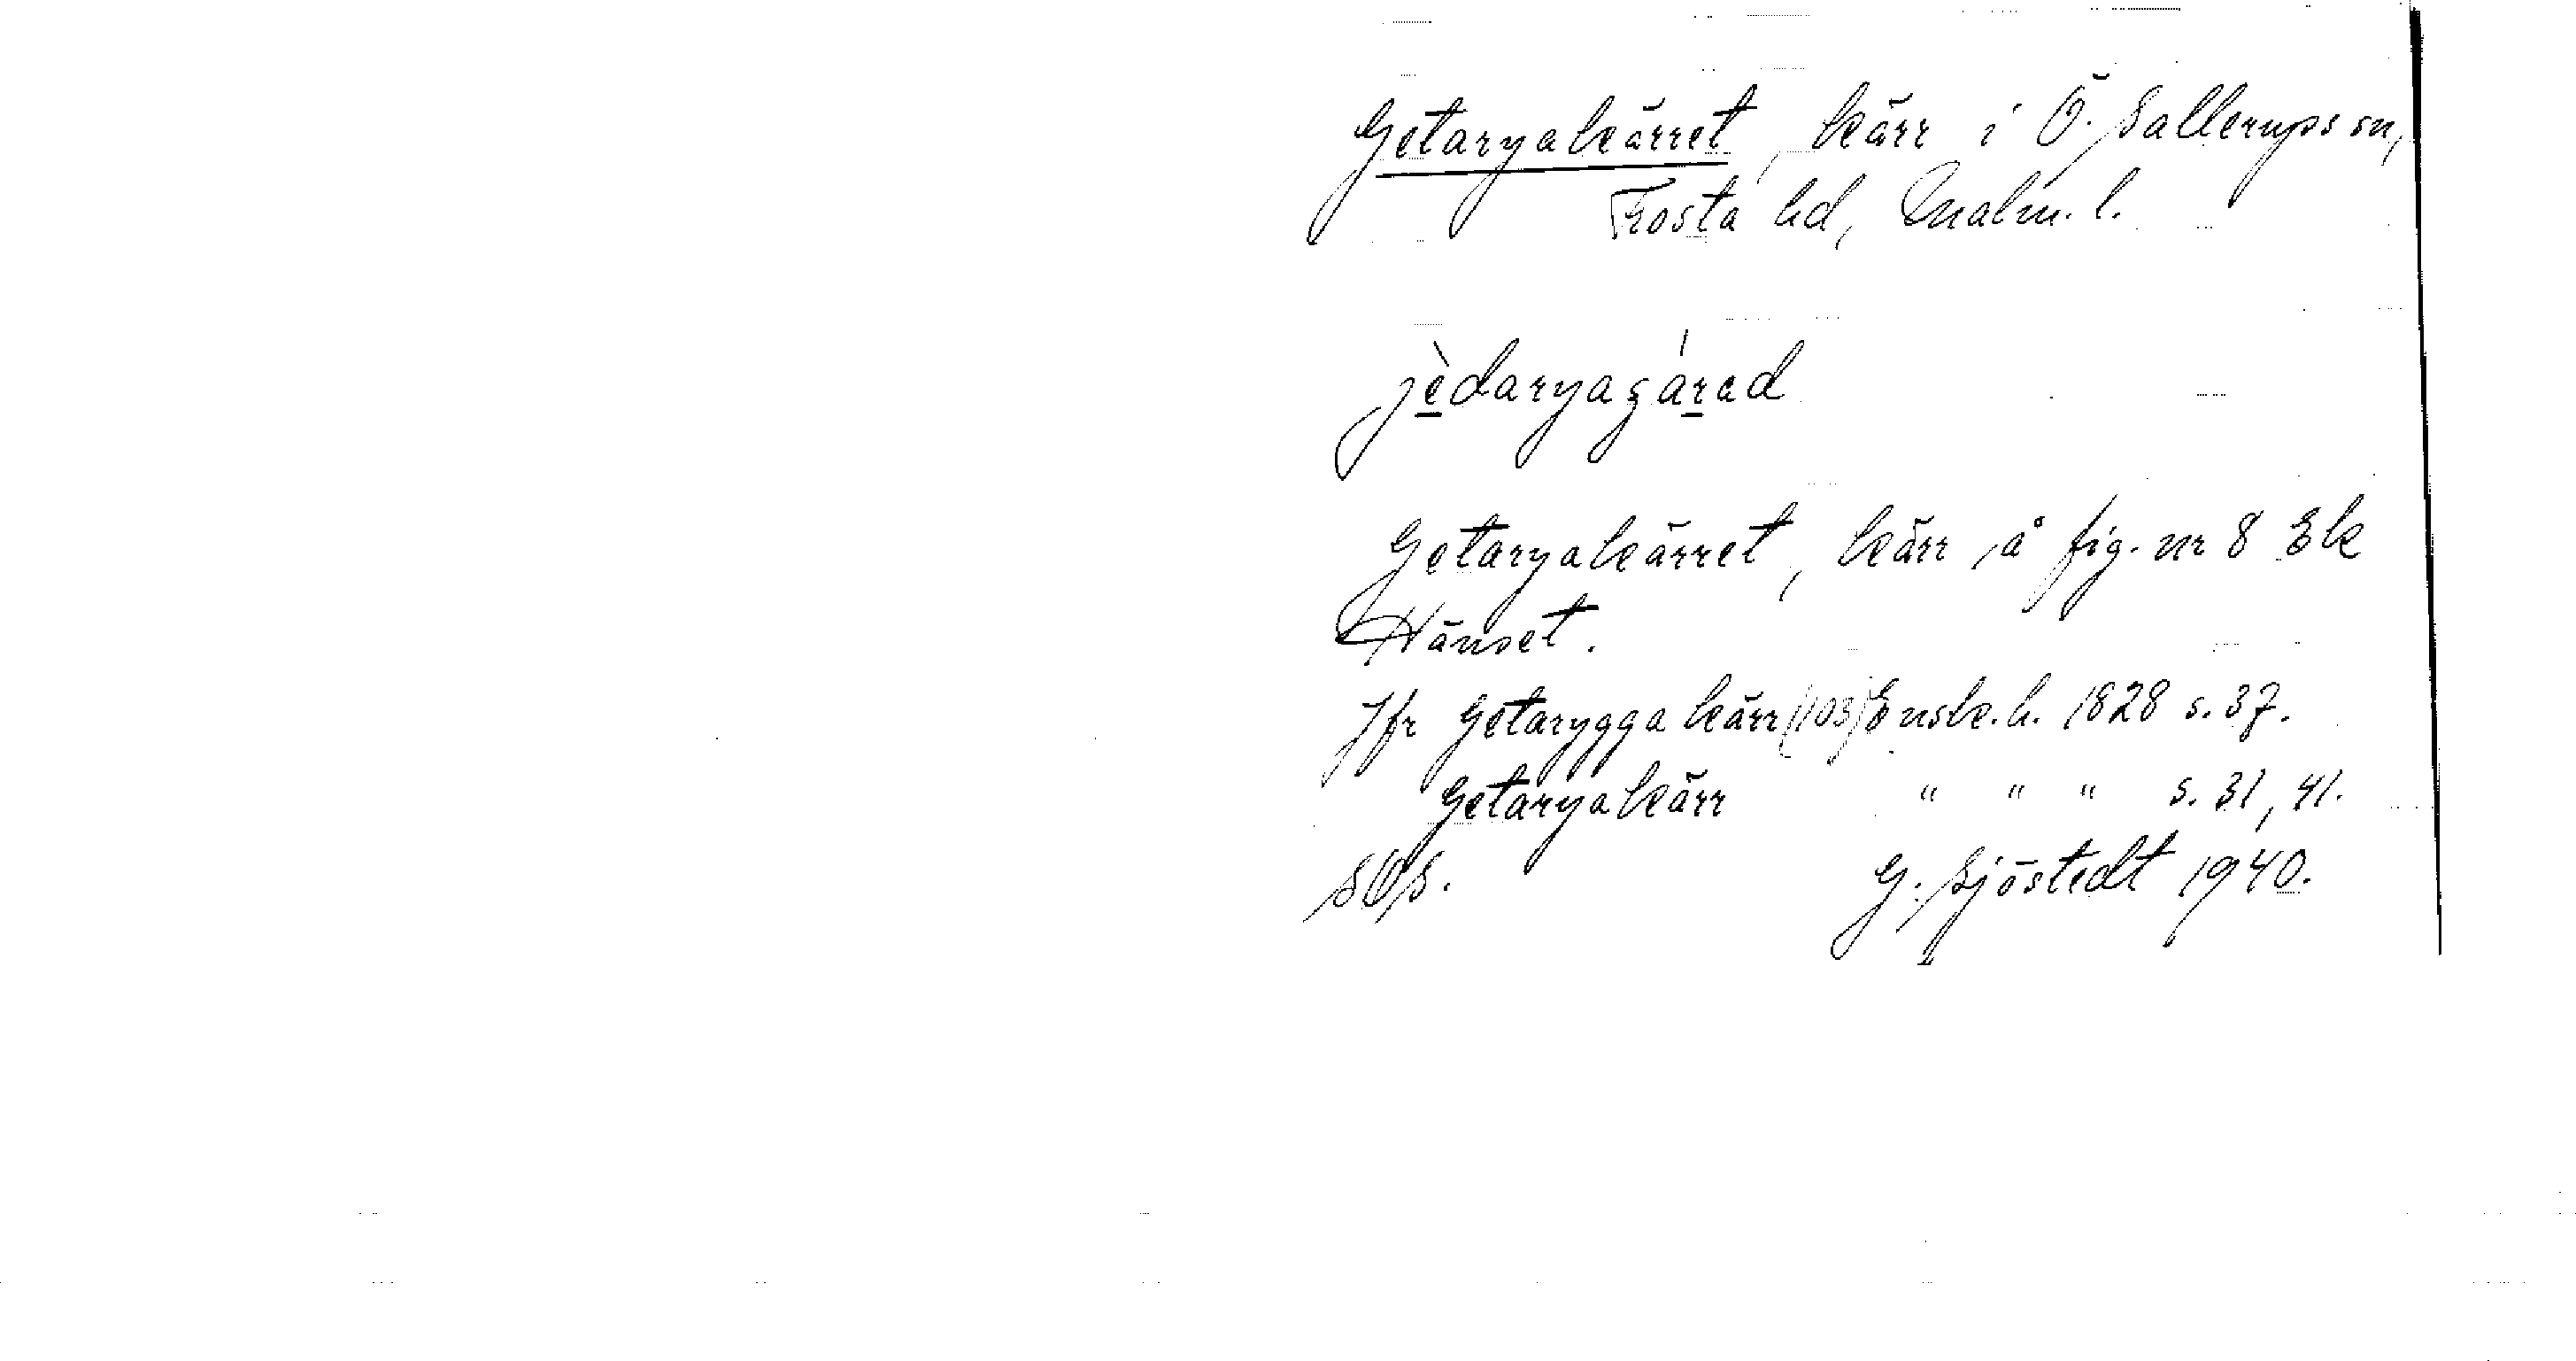 Getaryakärret, kärr i Ö. Sallerups sn,
Frosta hd, Malm. l.
jèdaryaʒárad
Getaryakärret, kärr å fig. nr 8 Ek
Hänset.
Jfr Getarygga kärr (103) Ensk.h. 1828 s. 37.
Getaryakärr " " " s. 31, 41.
SOS. G. Sjöstedt 1940.